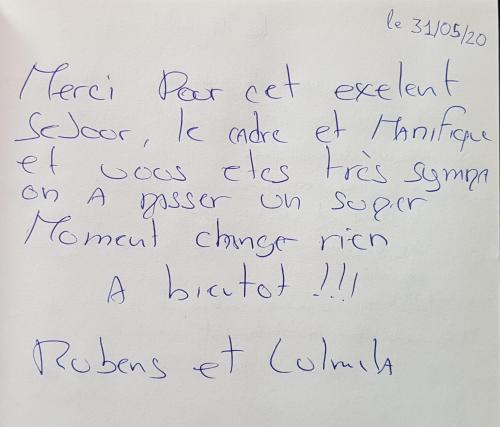 le 31/05/20
Merci Pour cet exelent
Sejour, le cadre et Manifique
et vous etes très sympa
on A passer un super
Moment change rien
A bientot !!!
Rubens et Lulmila